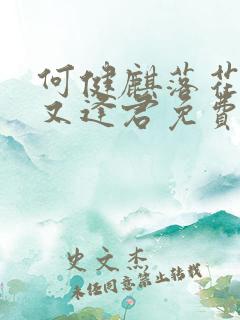 何健麒落花
又逢君免費
史文杰
未经同意禁止转载